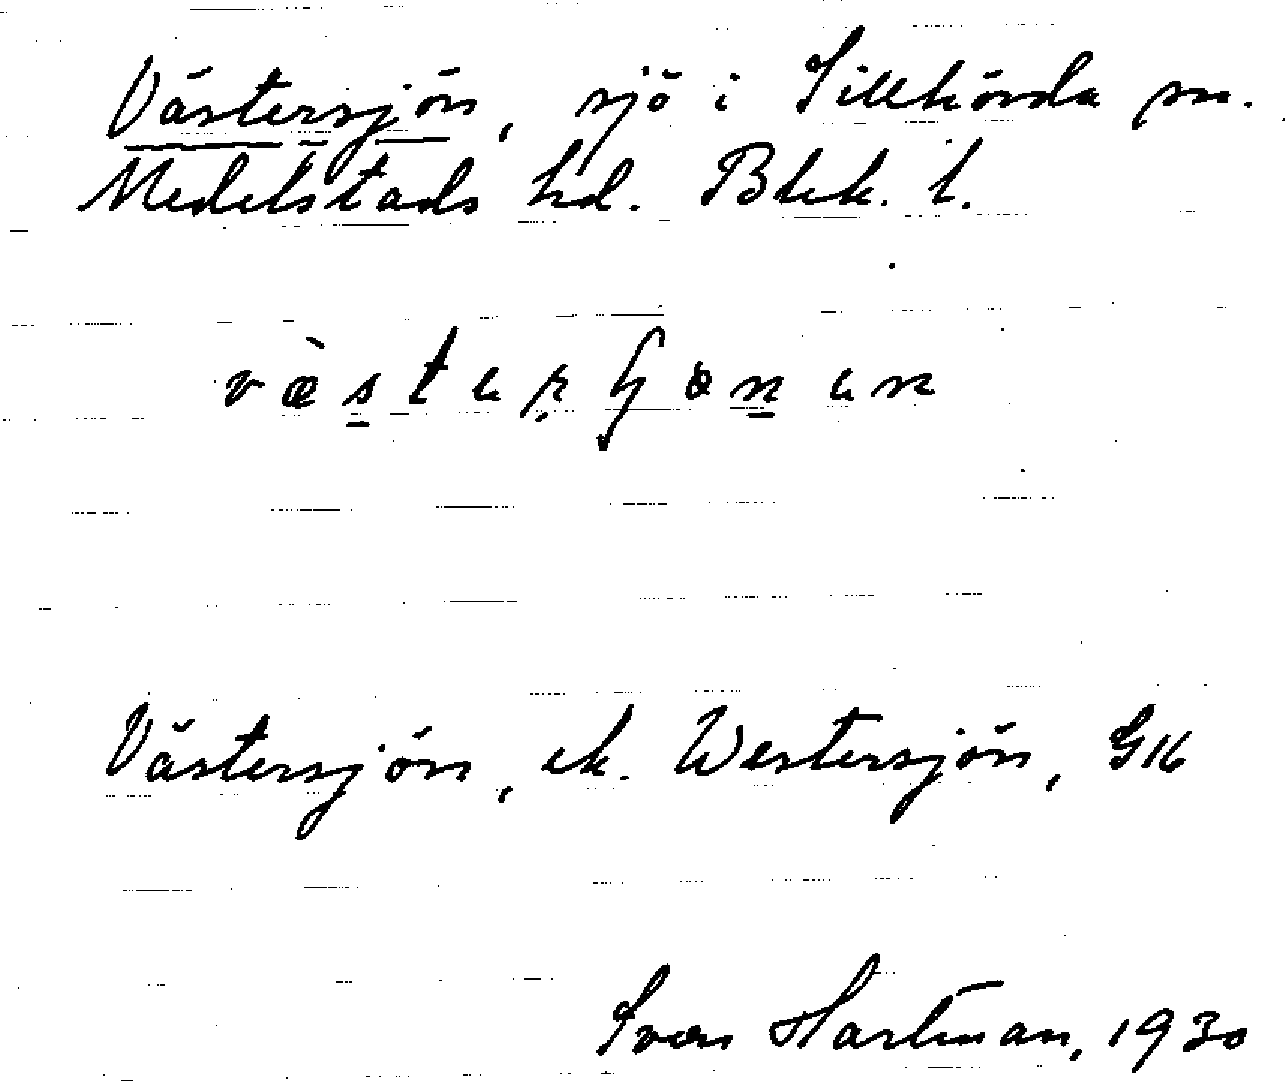 Västersjön, sjö i Sillhövda sn.
Medelstads hd. Blek. l.
Västersjön, ek. Westersjön, GK
Sven Hartman, 1930